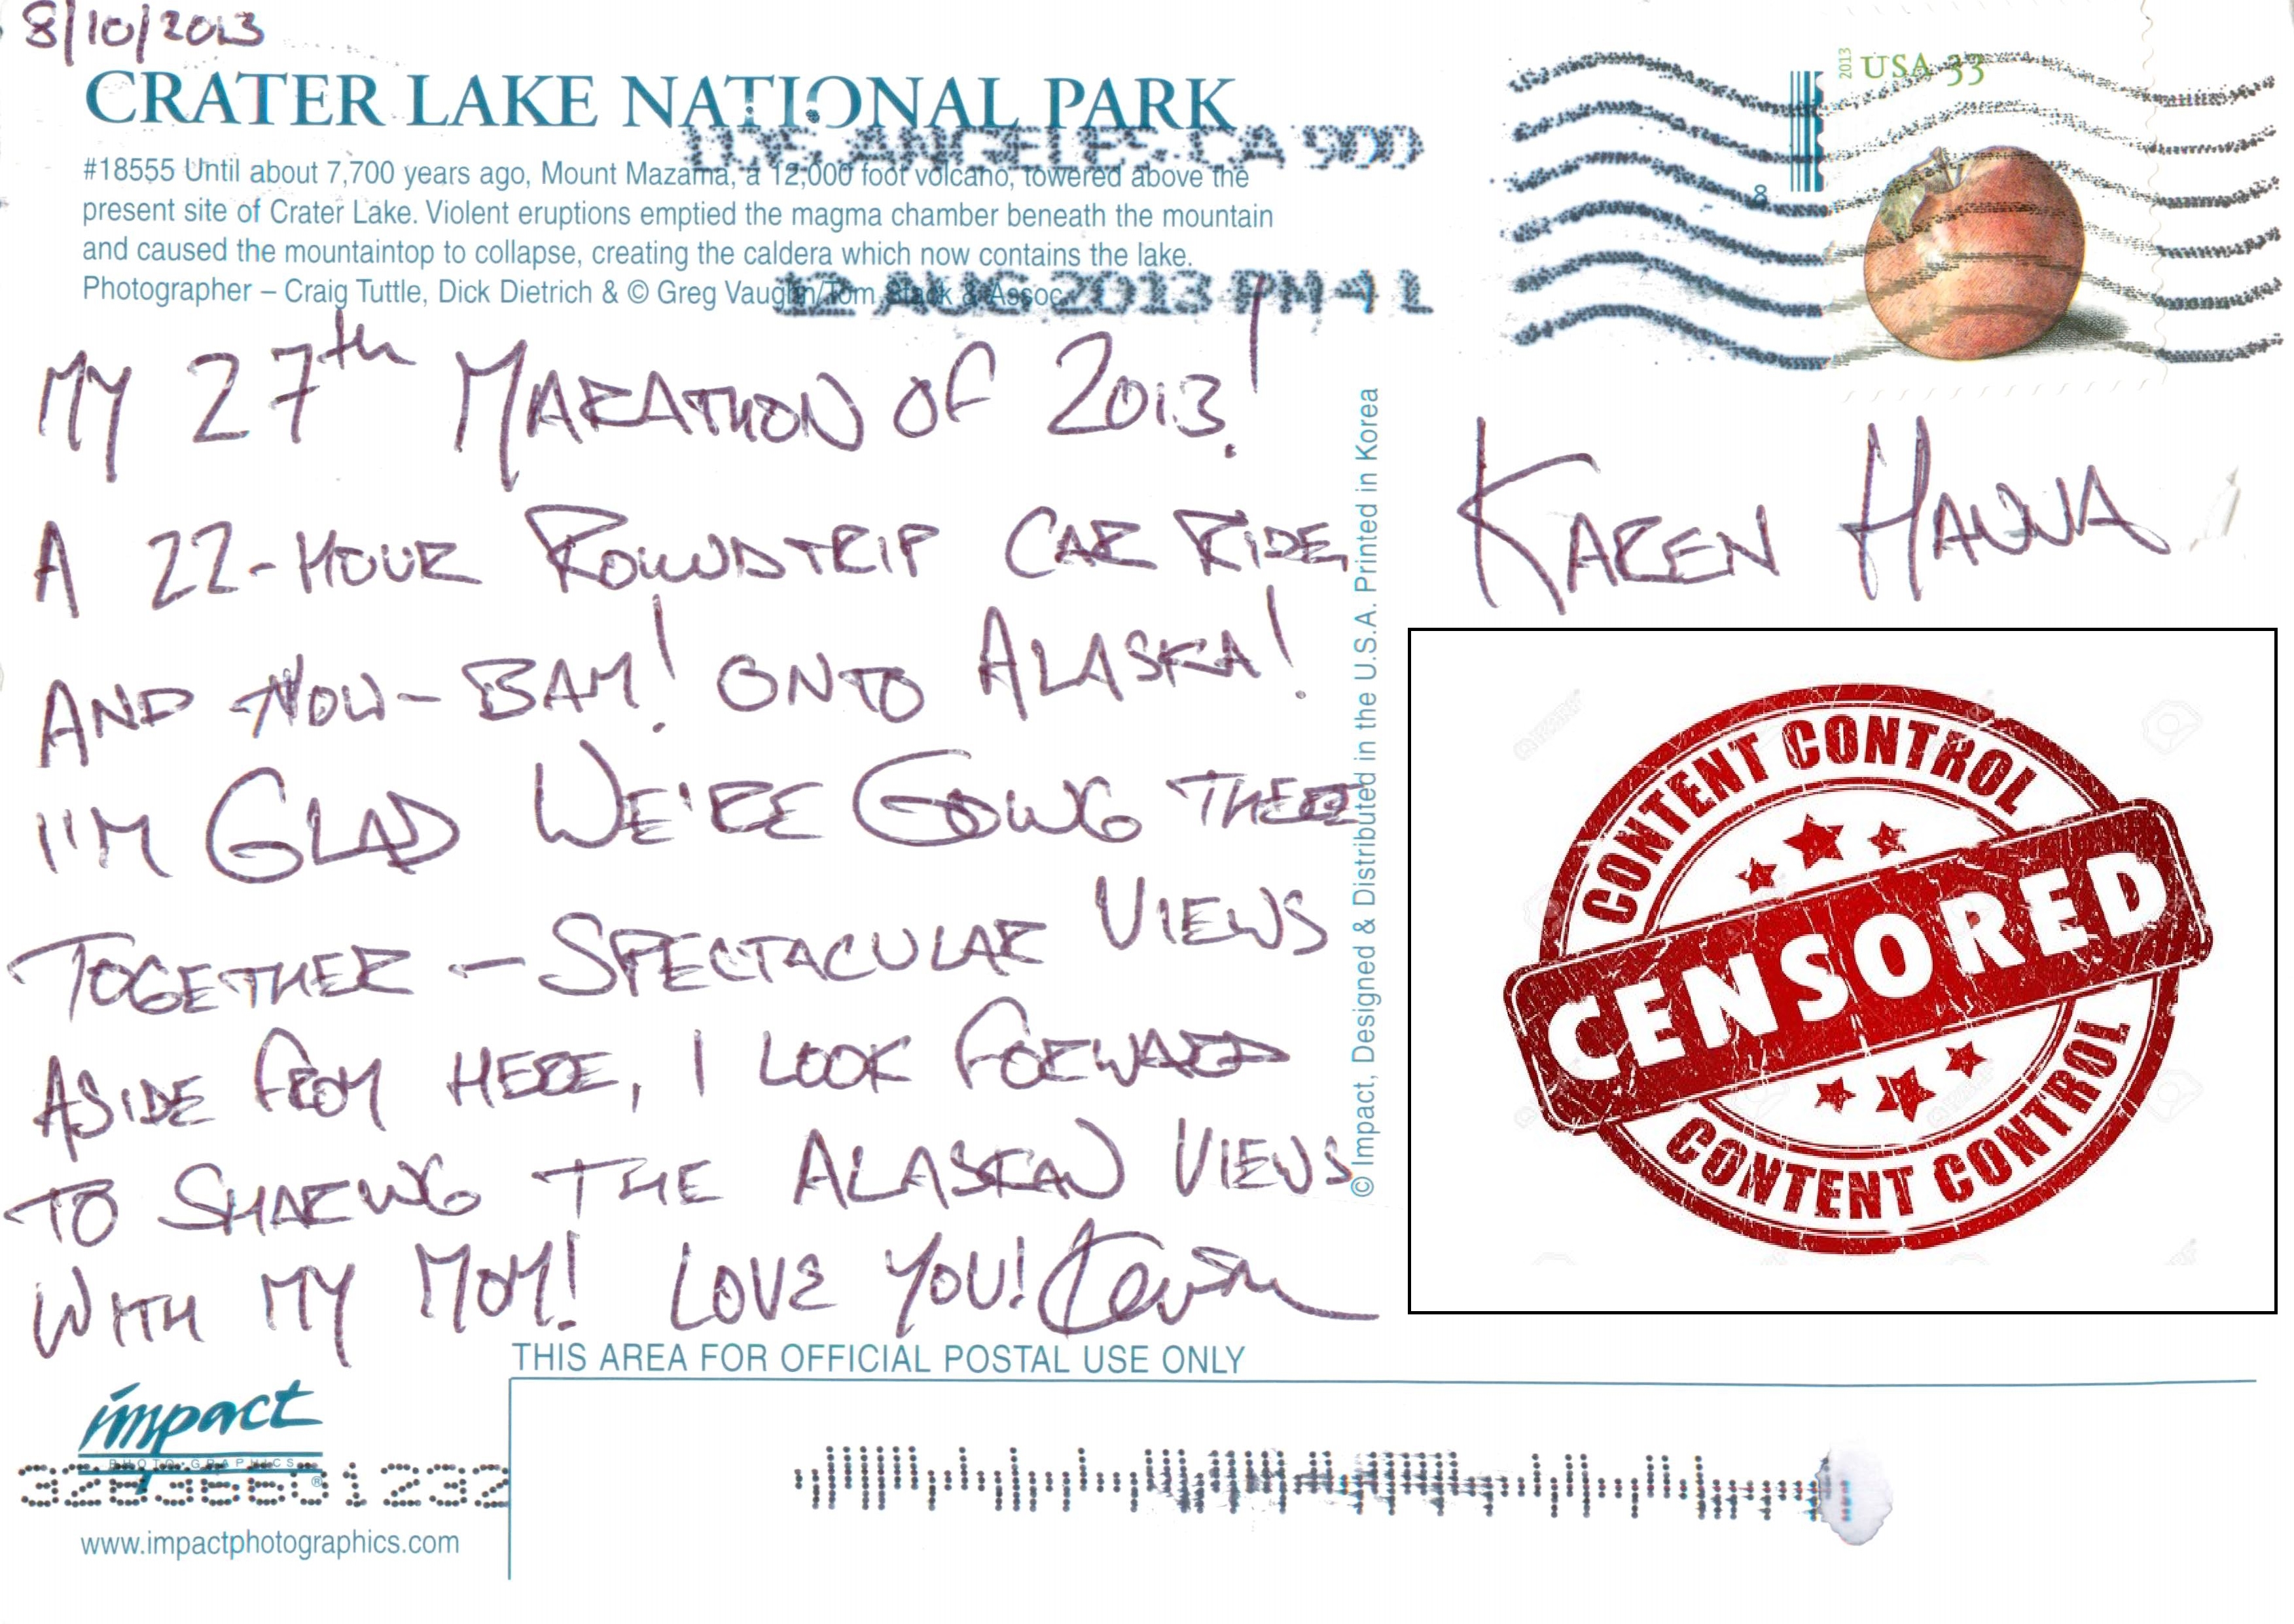 8/10/2013
CRATER LAKE NATIONAL PARK
LOS ANGELES CA 900
#18555 Until about 7,700 years ago, Mount Mazama, a 12,000 foot volcano, towered above the
present site of Crater Lake. Violent eruptions emptied the magma chamber beneath the mountain
and caused the mountaintop to collapse, creating the caldera which now contains the lake.
Photographer – Craig Tuttle, Dick Dietrich & © Greg Vaughn/Tom Stack & Assoc.
12 AUG 2013 PM 4 L
2013 USA 33
8
MY 27th MARATHON OF 2013!
A 22-HOUR ROUNDTRIP CAR RIDE,
AND NOW- BAM! ONTO ALASKA!
I'M GLAD WE'RE GOING THERE
TOGETHER - SPECTACULAR VIEWS
ASIDE FROM HERE, I LOOK FORWARD
TO SHARING THE ALASKAN VIEWS
WITH MY MOM! LOVE YOU! Kevin
© Impact, Designed & Distributed in the U.S.A. Printed in Korea
KAREN HANNA
CONTENT CONTROL
CENSORED
CONTENT CONTROL
THIS AREA FOR OFFICIAL POSTAL USE ONLY
impact
PHOTO·GRAPHICS
®
www.impactphotographics.com